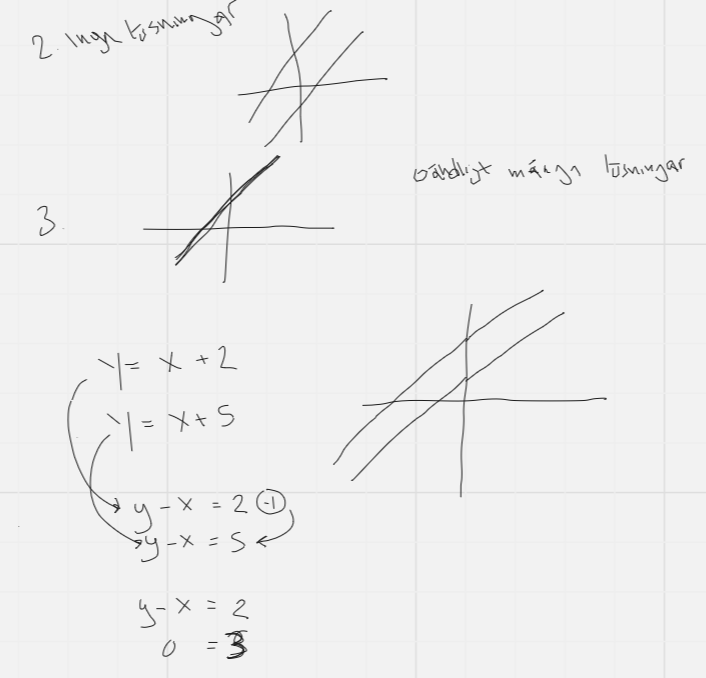 2. Inga lösningar
oändligt många lösningar
3.
y = x + 2
y = x + 5
y - x = 2 (-1)
y - x = 5
y - x = 2
0 = 3